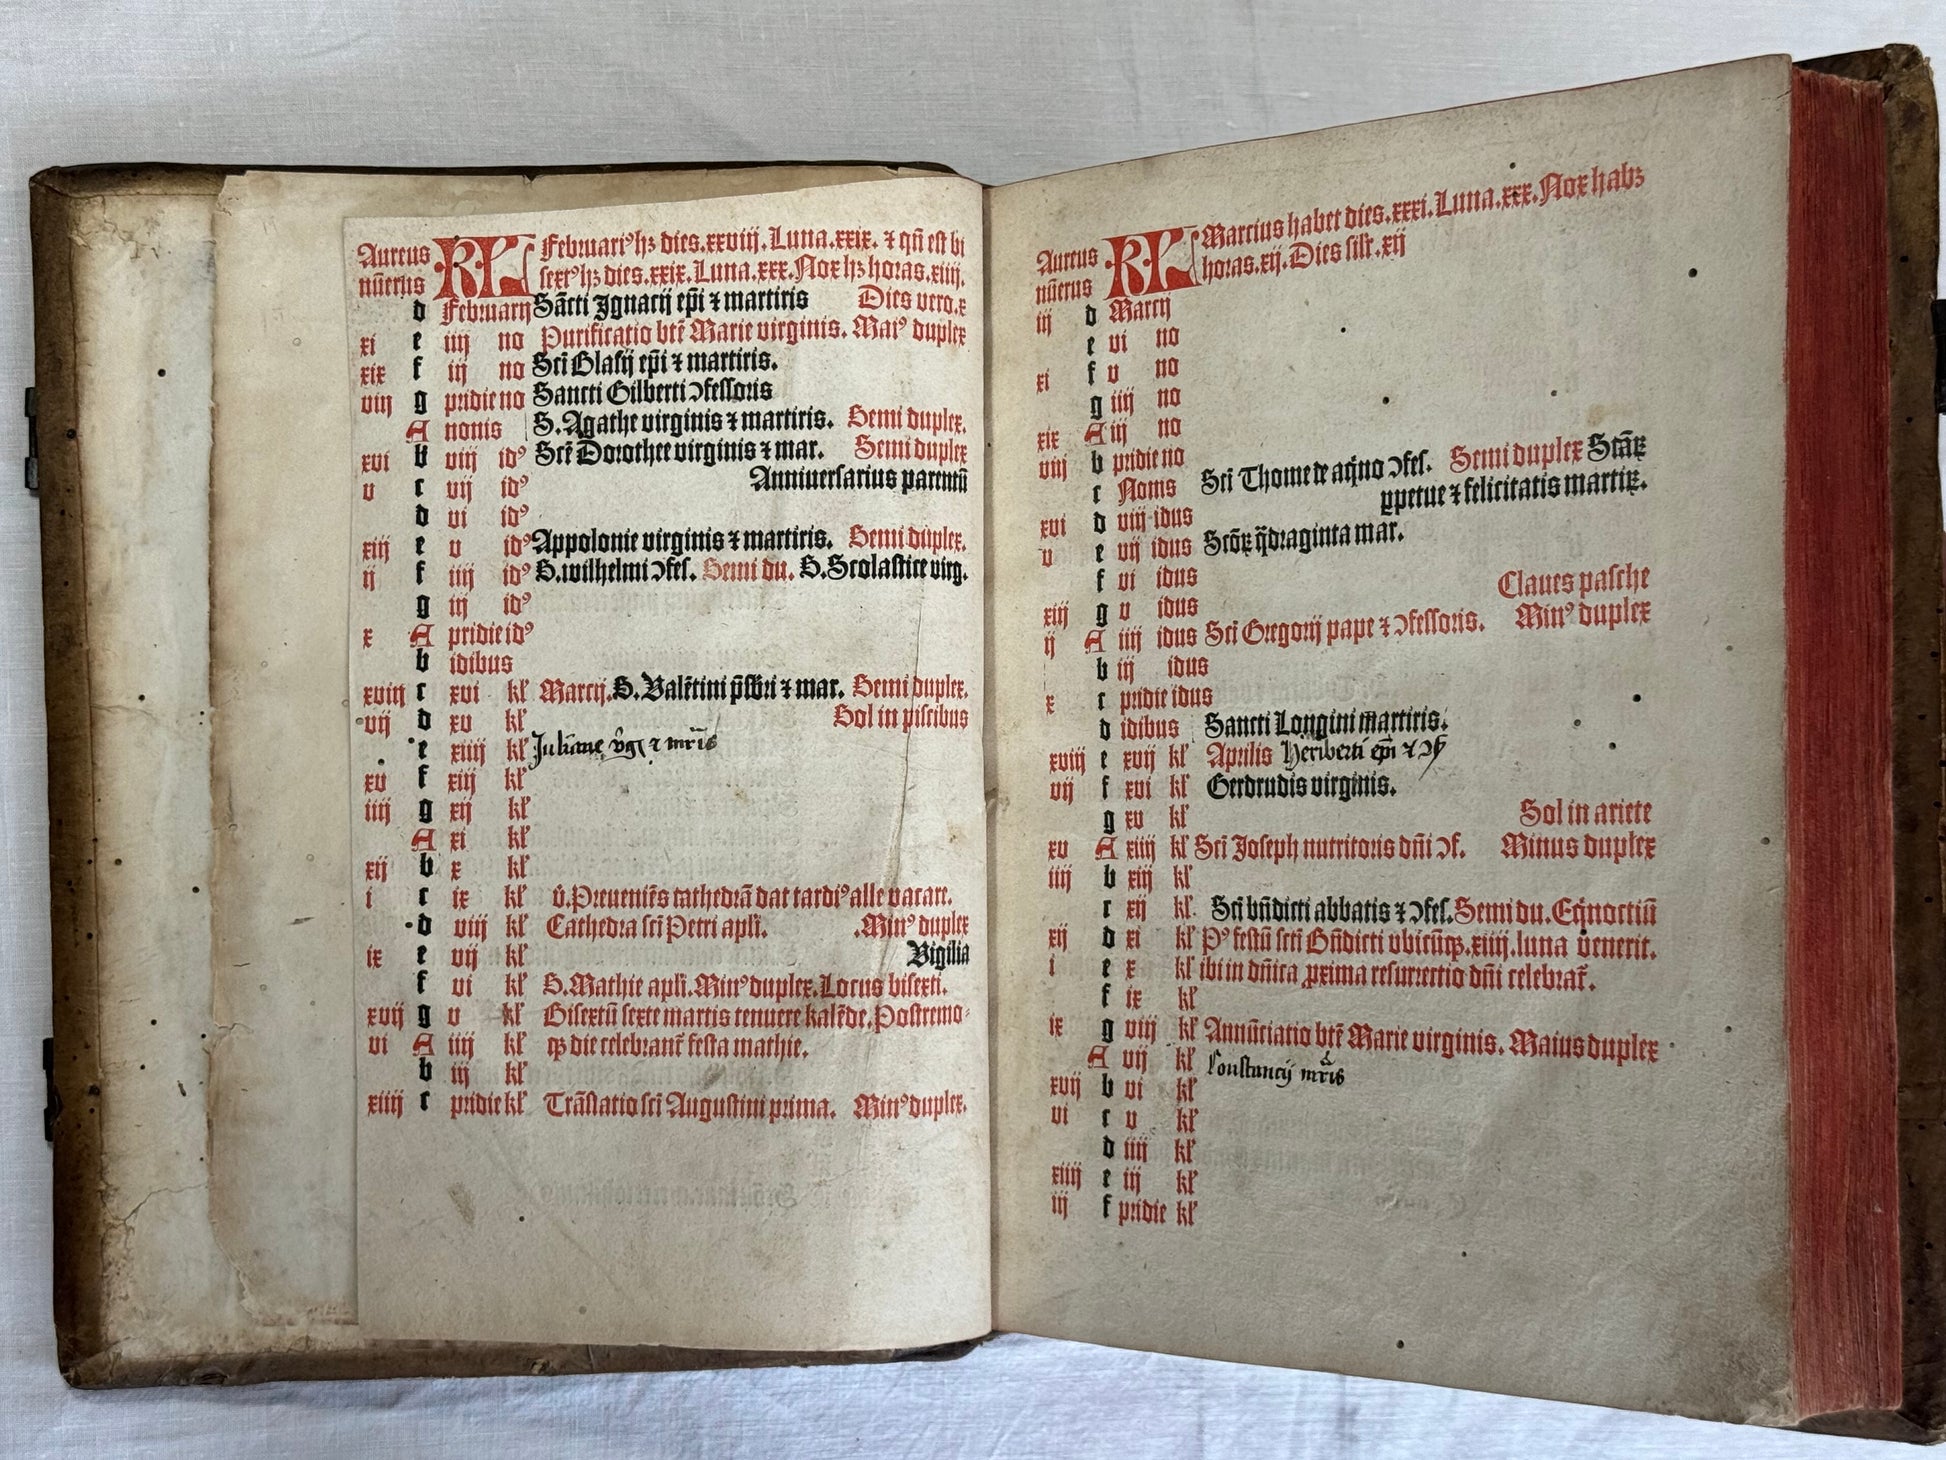 Aureus
nūerus
KL Februariꝰ hꝫ dies.xxviij. Luna.xxix. ⁊ qn̄ est bi
sextꝰ hꝫ dies.xxix. Luna.xxx. Nox hꝫ horas.xiiij.
d Februarij Sācti Ignacij ep̄i ⁊ martiris Dies vero.x
xi e iiij no Purificatio bte᷑ Marie virginis. Maiꝰ duplex
xix f iij no Sci᷑ Blasij ep̄i ⁊ martiris.
viij g pridie no Sancti Gilberti ↄfessoris
A nonis S. Agathe virginis ⁊ martiris. Semi duplex.
xvi b viij idꝰ Sce᷑ Dorothee virginis ⁊ mar. Semi duplex
v c vij idꝰ Anniuersarius parentū
d vi idꝰ
xiij e v idꝰ Appolonie virginis ⁊ martiris. Semi duplex.
ij f iiij idꝰ S. wilhelmi ↄfes. Semi du. S. Scolastice virg.
g iij idꝰ
x A pridie idꝰ
b idibus
xviij c xvi kl᷑ Marcij. S. Valētini p̄sbri ⁊ mar. Semi duplex.
vij d xv kl᷑ Sol in piscibus
e xiiij kl᷑ Juliane v̄g ⁊ mr̄is
xv f xiij kl᷑
iiij g xij kl᷑
A xi kl᷑
xij b x kl᷑
i c ix kl᷑ v̄. Preueniēs cathedrā dat tardiꝰ alle vacare.
d viij kl᷑ Cathedra sci᷑ Petri apl᷑i. Minꝰ duplex
ix e vij kl᷑ Vigilia
f vi kl᷑ S. Mathie apl᷑i. Minꝰ duplex. Locus bisexti.
xvij g v kl᷑ Bisextū sexte martis tenuere kalēde. Postremo-
vi A iiij kl᷑ qꝫ die celebrant᷑ festa mathie.
b iij kl᷑
xiiij c pridie kl᷑ Trāslatio sci᷑ Augustini prima. Minꝰ duplex.
Aureus
nūerus
KL Marcius habet dies.xxxi. Luna.xxx. Nox habꝫ
horas.xij. Dies sil᷑r.xij
iij d Marcij
e vi no
xi f v no
g iiij no
xix A iij no
viij b pridie no
c Nonis Sci᷑ Thome de aq̇no ↄfes. Semi duplex Scāꝝ
xvi d viij idus ꝑpetue ⁊ felicitatis martiꝝ.
v e vij idus Scōꝝ q̈draginta mar.
f vi idus Claues pasche
xiij g v idus
ij A iiij idus Sci᷑ Gregorij pape ⁊ ↄfessoris. Minꝰ duplex
b iij idus
x c pridie idus
d idibus Sancti Longini martiris.
xviij e xvij kl᷑ Aprilis Heriberti ep̄i ⁊ ↄf
vij f xvi kl᷑ Gerdrudis virginis.
g xv kl᷑ Sol in ariete
xv A xiiij kl᷑ Sci᷑ Joseph nutritoris dn̄i ↄf. Minus duplex
iiij b xiij kl᷑
c xij kl᷑. Sci᷑ bn̄dicti abbatis ⁊ ↄfes. Semi du. Eq̇noctiū
xij d xi kl᷑ Pꝰ festū scti᷑ Bn̄dicti vbicūqꝫ.xiiij.luna venerit.
i e x kl᷑ ibi in dn̄ica ꝓxima resurrectio dn̄i celebrat᷑.
f ix kl᷑
ix g viij kl᷑ Annūciatio bte᷑ Marie virginis. Maius duplex
A vij kl᷑ Constancij mr̄is
xvij b vi kl᷑
vi c v kl᷑
d iiij kl᷑
xiiij e iij kl᷑
iij f pridie kl᷑